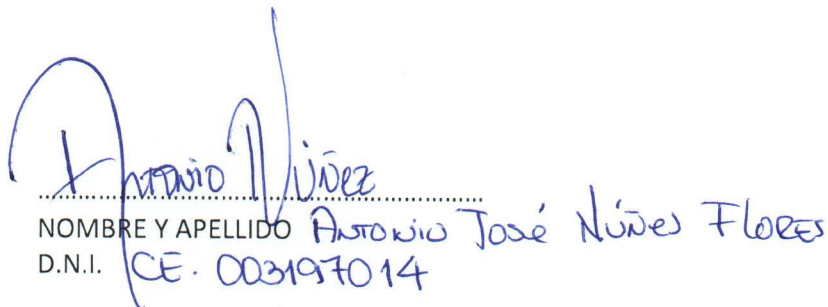 Antonio Núñez
NOMBRE Y APELLIDO Antonio José Núñes Flores
D.N.I. CE. 003197014